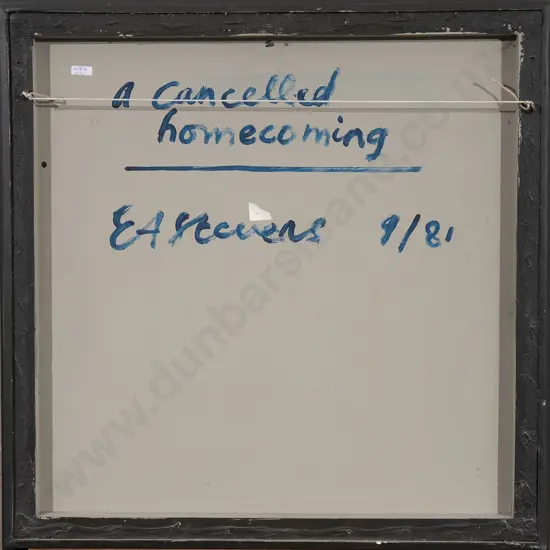 a cancelled
homecoming
EA Stevens 9/81
www.dunbarsloane.co.nz